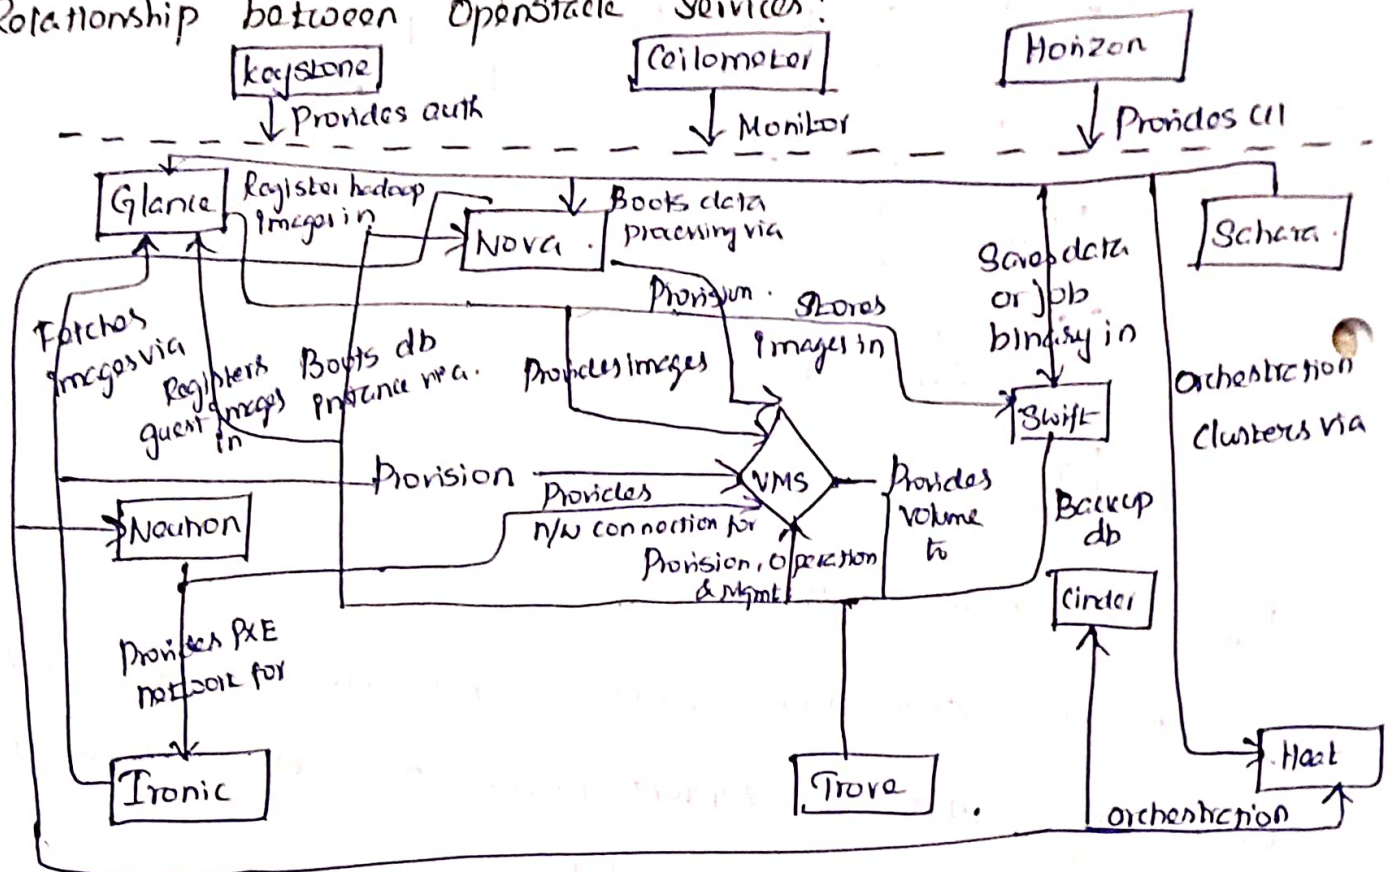 Relationship between OpenStack Services:
keystone
Ceilometer
Horizon
Provides auth
Monitor
Provides UI
Glance
Register hadoop
images in
Nova
Boots data
processing via
Sahara
Saves data
or job
binary in
Provision
Stores
images in
Fetches
images via
Registers
guest images
in
Boots db
instance via
Provides images
Swift
Orchestration
Clusters via
Provision
VMS
Provides
volume
to
Provides
n/w connection for
Neutron
Backup
db
Provision, Operation
& Mgmt
Cinder
Provides PXE
network for
Ironic
Trove
Heat
orchestration